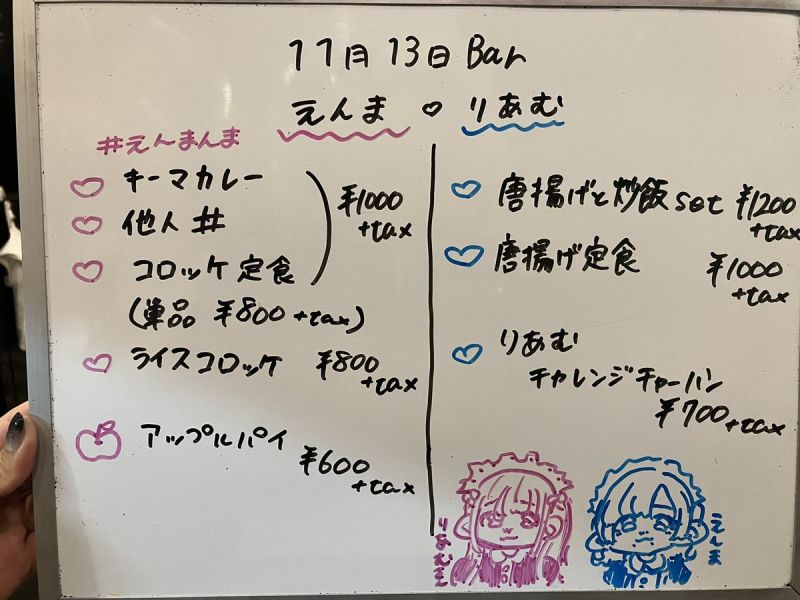 11月13日 Bar
えんま ♡ りあむ
#えんまんま
♡ キーマカレー
♡ 他人丼
¥1000
+tax
♡ コロッケ定食
(単品 ¥800 +tax)
♡ ライスコロッケ ¥800
+tax
アップルパイ
¥600
+tax
♡ 唐揚げと炒飯set ¥1200
+tax
♡ 唐揚げ定食 ¥1000
+tax
♡ りあむ
チャレンジチャーハン
¥700 +tax
えんま